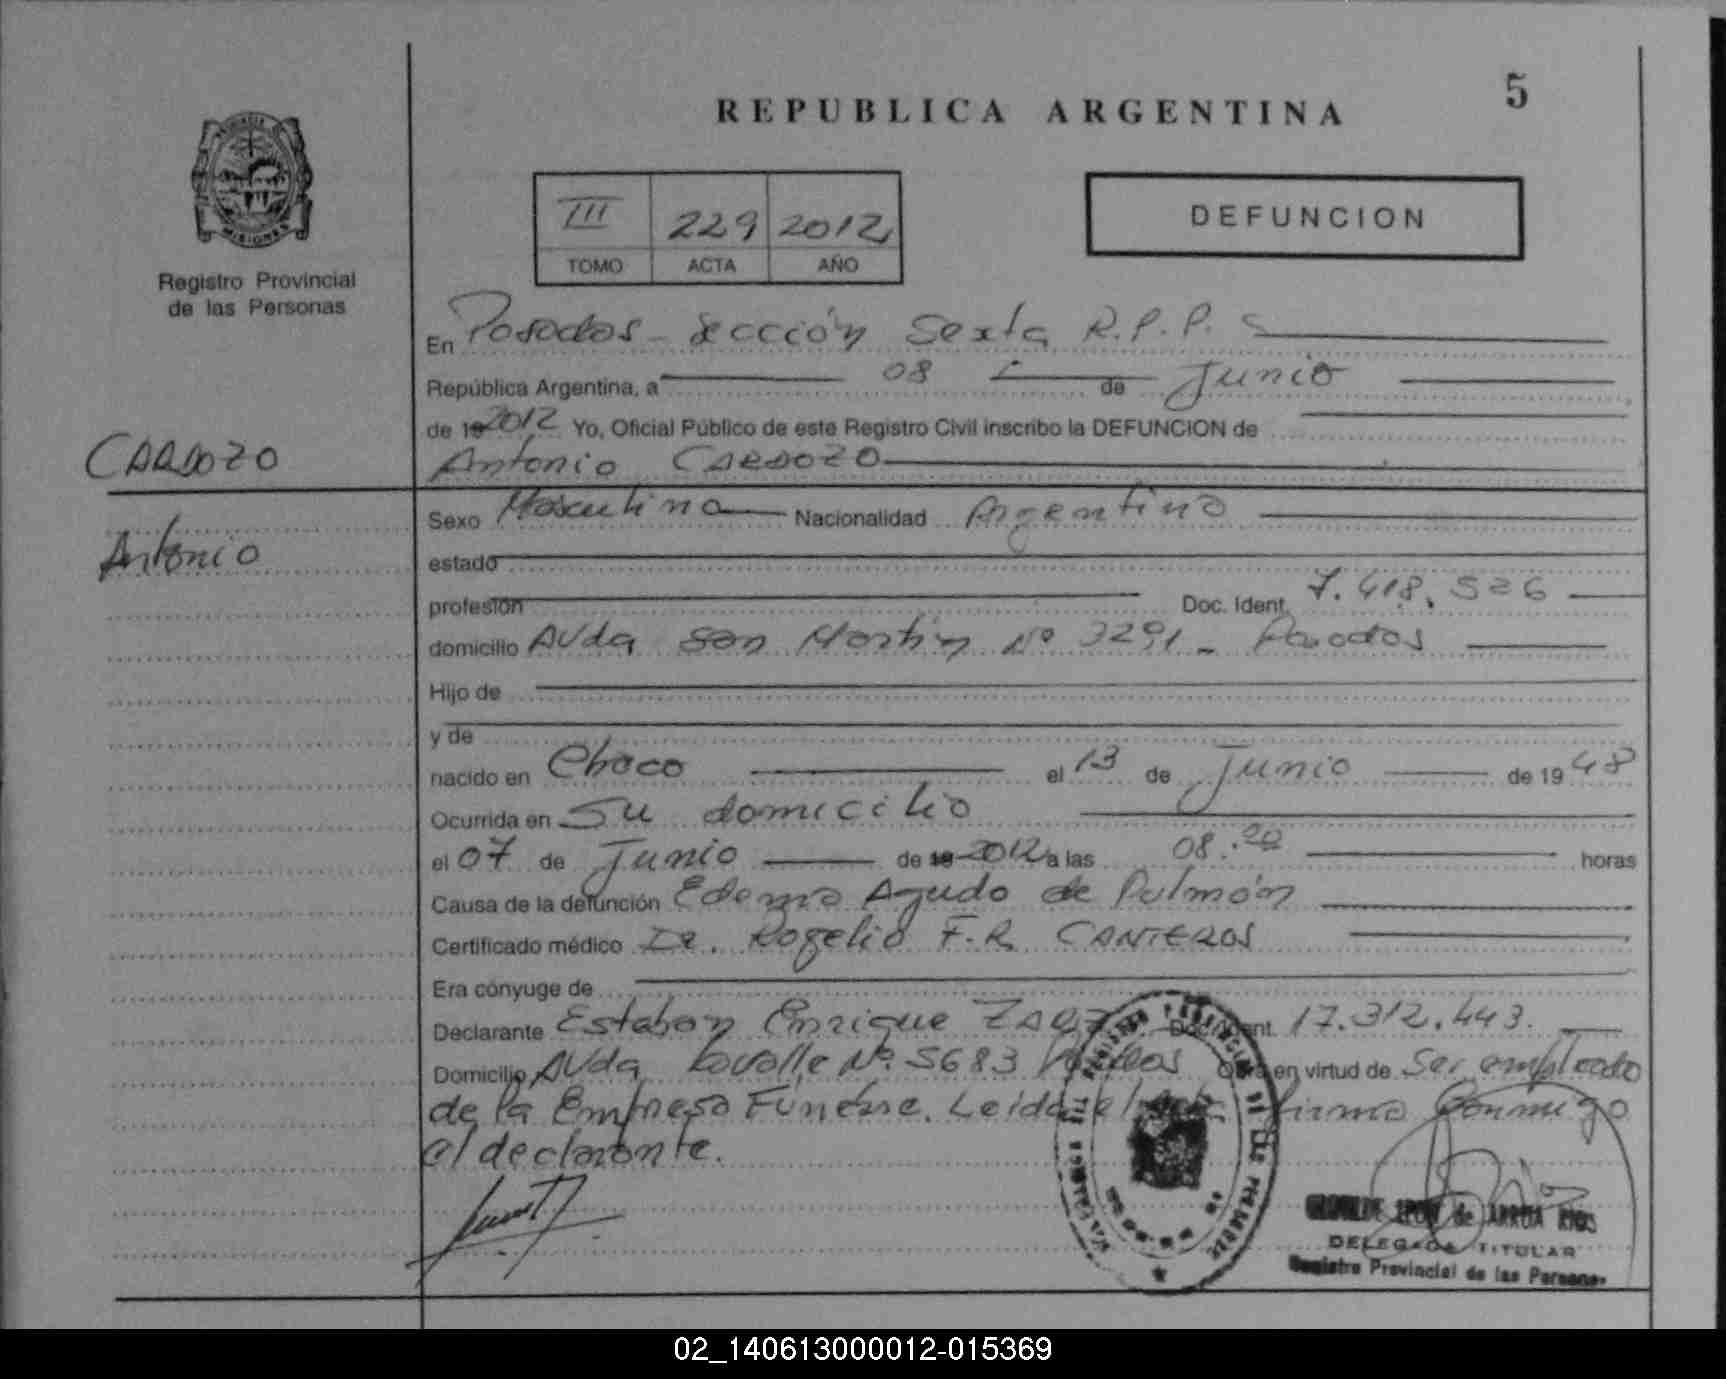 5
REPUBLICA ARGENTINA
MISIONES
Registro Provincial
de las Personas
III 229 2012
TOMO ACTA AÑO
DEFUNCION
En Posadas - Sección Sexta R.P.P.
República Argentina, a 08 de Junio
de 19 2012 Yo, Oficial Público de este Registro Civil inscribo la DEFUNCION de
CARDOZO
Antonio CARDOZO
Antonio
Sexo Masculino Nacionalidad Argentino
estado
profesión Doc. Ident. 7.418.526
domicilio AVda San Martín Nº 3291 - Posadas
Hijo de
y de
nacido en Chaco el 13 de Junio de 19 48
Ocurrida en Su domicilio
el 07 de Junio de 19 2012 a las 08:20 horas
Causa de la defunción Edema Agudo de Pulmón
Certificado médico Dr. Rogelio F.R. CANTEROS
Era cónyuge de
Declarante Estaban Enrique Doc. Ident. 17.312.443.
Domicilio AVda Lavalle Nº 5683 Posadas Obra en virtud de Ser empleado
de la Empresa Fúnebre. Leída el firma Conmigo
el declarante.
de
DELEGADA TITULAR
Registro Provincial de las Personas
02_140613000012-015369